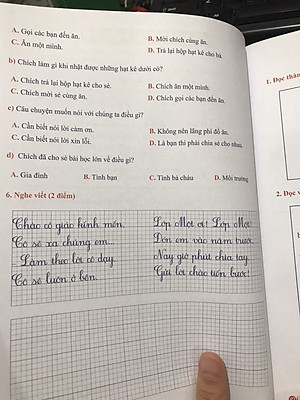 A. Gọi các bạn đến ăn.
B. Mời chích cùng ăn.
C. Ăn một mình.
D. Trả lại hộp hạt kê cho bà.
b) Chích làm gì khi nhặt được những hạt kê dưới cỏ?
A. Chích trả lại hộp hạt kê cho sẻ.
B. Chích ăn một mình.
C. Chích mời sẻ cùng ăn.
D. Chích gọi các bạn đến ăn.
c) Câu chuyện muốn nói với chúng ta điều gì?
A. Cần biết nói lời cảm ơn.
B. Không nên lãng phí đồ ăn.
C. Cần biết nói lời xin lỗi.
D. Là bạn thì phải chia sẻ cho nhau.
d) Chích đã cho sẻ bài học lớn về điều gì?
A. Gia đình
B. Tình bạn
C. Tình bà cháu
D. Môi trường
6. Nghe viết (2 điểm)
Chào cô giáo kính mến.
Cô sẽ xa chúng em...
Làm theo lời cô dạy
Cô sẽ luôn ở bên.
Lớp Một ơi! Lớp Một!
Đón em vào năm trước
Nay giờ phút chia tay
Gửi lời chào tiến bước!
1. Đọc
2. Đọc